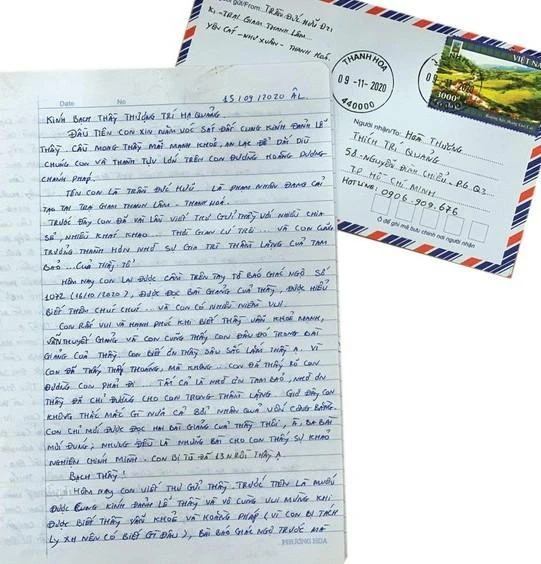 Người gửi/From: TRẦN ĐỨC HỮU Đ21
K1 - TRẠI GIAM THANH LÂM -
YÊN CÁT - NHƯ XUÂN - THANH HOÁ.
THANH HOA
09-11-2020
440000
VIỆT NAM
3000đ
Người nhận/To: HOÀ THƯỢNG
THÍCH TRÍ QUẢNG
58 - NGUYỄN ĐÌNH CHIỂU - P.6 Q3
T.P HỒ CHÍ MINH
HOTLINE: 0906.909.676
Ô để ghi mã bưu chính nơi người nhận
Date No 15/09/2020 ÂL
KÍNH BẠCH THẦY THƯỢNG TRÍ HẠ QUẢNG
ĐẦU TIÊN CON XIN NĂM VÓC SÁT ĐẤT CUNG KÍNH ĐẢNH LỄ
THẦY. CẦU MONG THẦY MÃI MẠNH KHOẺ, AN LẠC ĐỂ DẪN DẮT
CHÚNG CON VÀ THÀNH TỰU LỚN TRÊN CON ĐƯỜNG HOẰNG DƯƠNG
CHÁNH PHÁP.
TÊN CON LÀ TRẦN ĐỨC HỮU. LÀ PHẠM NHÂN ĐANG CẢI
TẠO TẠI TRẠI GIAM THANH LÂM - THANH HOÁ.
TRƯỚC ĐÂY CON ĐÃ VÀI LẦN VIẾT THƯ GỬI THẦY VỚI NHIỀU CHIA
SẺ, NHIỀU KHÁT KHAO... THỜI GIAN CỨ TRÔI... VÀ CON CŨNG
TRƯỞNG THÀNH HƠN NHỜ SỰ GIA TRÌ THẦM LẶNG CỦA TAM
BẢO... CỦA THẦY TỔ!
HÔM NAY CON LẠI ĐƯỢC CẦM TRÊN TAY TỜ BÁO GIÁC NGỘ SỐ
1072 (16/10/2020), ĐƯỢC ĐỌC BÀI GIẢNG CỦA THẦY, ĐƯỢC HIỂU
BIẾT THÊN CHÚT CHÚT... VÀ CON CÓ NHIỀU NIỀM VUI.
CON RẤT VUI VÀ HẠNH PHÚC KHI BIẾT THẦY VẪN KHOẺ MẠNH,
VẪN THUYẾT GIẢNG VÀ CON CŨNG THẤY CON ĐÂU ĐÓ TRONG BÀI
GIẢNG CỦA THẦY. CON BIẾT ƠN THẦY SÂU SẮC LẮM THẦY Ạ. VÌ
CON ĐÃ THẤY THẤP THOÁNG, MÀ KHÔNG... CON ĐÃ THẤY RÕ CON
ĐƯỜNG CON PHẢI ĐI... TẤT CẢ LÀ NHỜ ƠN TAM BẢO, NHỜ ƠN
THẦY ĐÃ CHỈ ĐƯỜNG CHO CON TRONG THẦM LẶNG. GIỜ ĐÂY CON
KHÔNG THẮC MẮC GÌ NỮA CẢ BỞI NHÂN QUẢ VỐN CÔNG BẰNG.
CON CHỈ MỚI ĐƯỢC ĐỌC HAI BÀI GIẢNG CỦA THẦY THÔI, À, BA BÀI
MỚI ĐÚNG; NHƯNG ĐỀU LÀ NHỮNG BÀI CHO CON THẤY SỰ KHẢO
NGHIỆM CHÍNH MÌNH. CON BỊ TÙ ĐÃ 13 N RỒI THẦY Ạ.
BẠCH THẦY!
HÔM NAY CON VIẾT THƯ GỬI THẦY. TRƯỚC TIÊN LÀ MUỐN
ĐƯỢC CUNG KÍNH ĐẢNH LỄ THẦY VÀ VÔ CÙNG VUI MỪNG KHI
ĐƯỢC BIẾT THẦY VẪN KHOẺ VÀ HOẰNG PHÁP (VÌ CON BỊ TÁCH
LY XH NÊN CÓ BIẾT GÌ ĐÂU), BÀI BÁO GIÁC NGỘ TRƯỚC MÀ
PHƯƠNG HOA